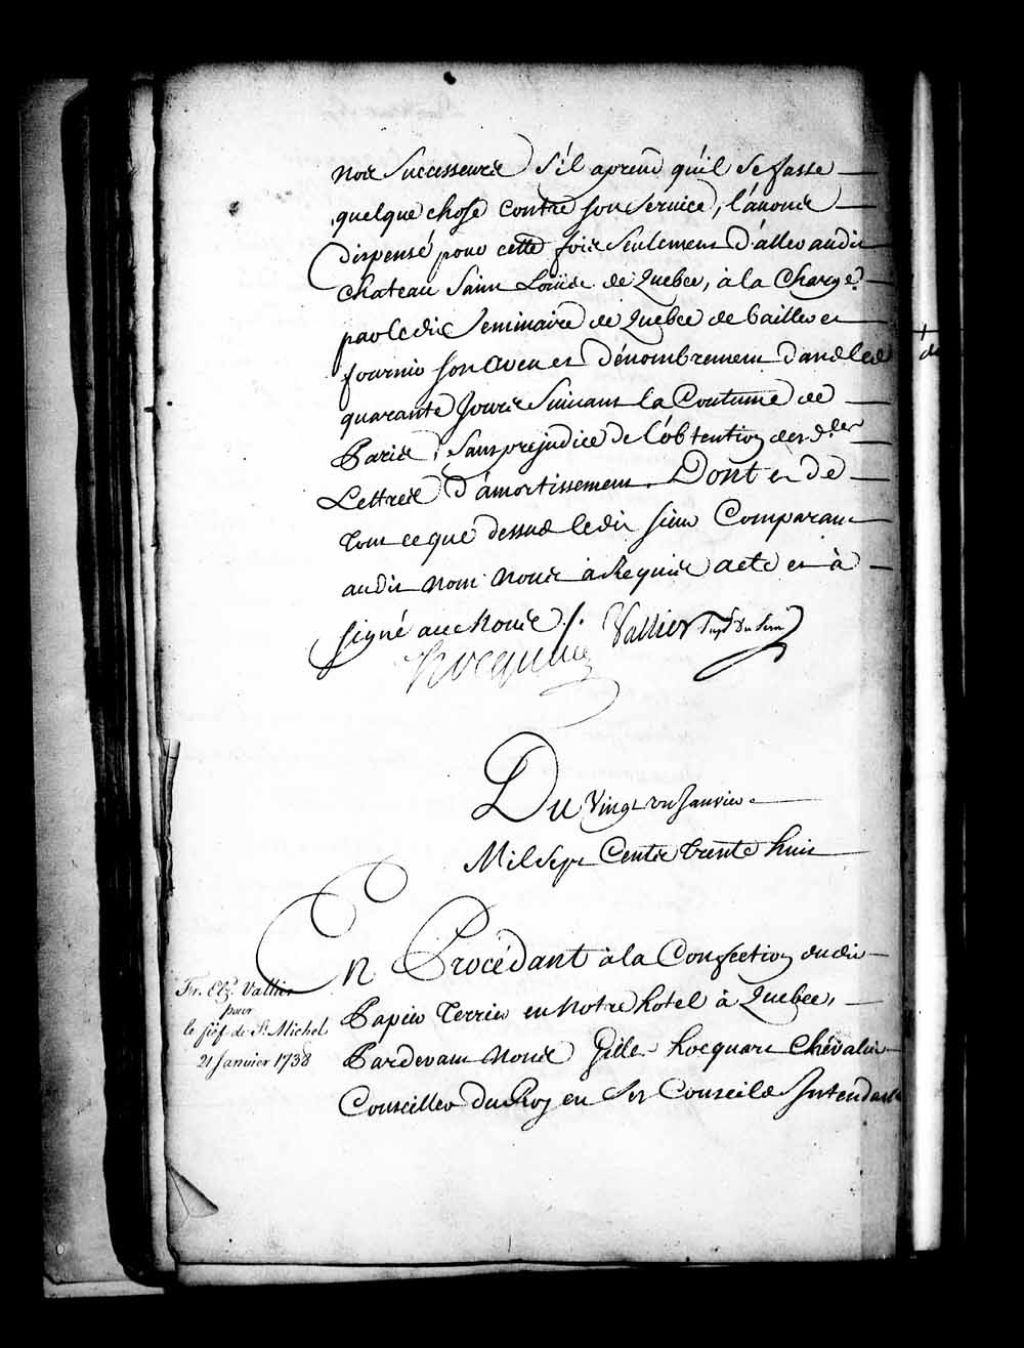 nos Successeurs S'il aprend qu'il se fasse
quelque chose contre son service, l'avons
Dispensé pour cette fois seulement d'aller audit
Chateau Saint Loüis de Quebec, à la Charge
par ledit Seminaire de Quebec de bailler et
fournir son aveu et dénombrement dans les
quarante Jours Suivant la Coutume de
Paris, Sans prejudice de l'obtention desd.
Lettres d'amortissement. Dont et de
tout ce que dessus ledit sieur Comparant
audit nom nous a Requis acte et à
signé avec Nous ./. Vallier Supr Du Sem
Hocquart
Du Vingt un Janvier
Mil Sept Cents trente huit
En Procédant à la Confection dudit
Papier Terrier en Notre hotel à Quebec,
Pardevant Nous Gille hocquart Chevalier
Conseiller du Roy en Ses Conseils Intendant
Fr. Elz. Vallier
pour
le fief de St. Michel
21 Janvier 1738